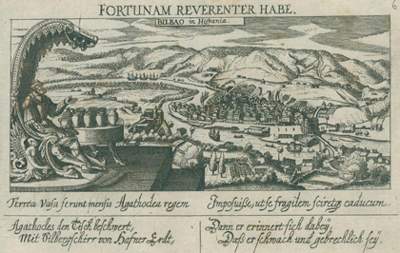 6
FORTUNAM REVERENTER HABE.
BILBAO in Hispania.
Terrea Vasa ferunt mensis Agathoclea regem
Imposuisse, ut se fragilem sciret et caducum.
Agathocles den Tisch beschwert,
Mit Silbergschirr von Hafner Erdt,
Dann er erinnert sich dabey,
Daß er schwach und gebrechlich sey.